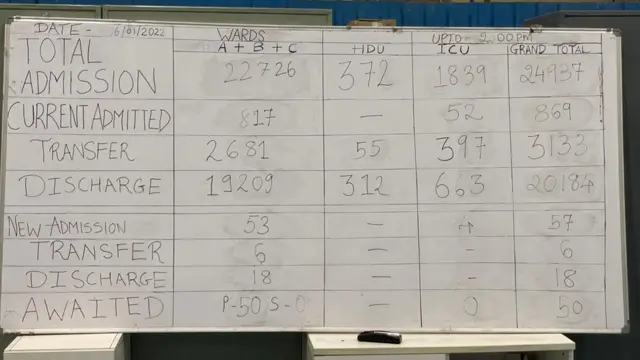 DATE- 6/01/2022 WARDS UPTO- 2.00 PM
TOTAL ADMISSION A + B + C HDU ICU GRAND TOTAL
22726 372 1839 24937
CURRENT ADMITTED 817 — 52 869
TRANSFER 2681 55 397 3133
DISCHARGE 19209 312 663 20184
NEW ADMISSION 53 — 4 57
TRANSFER 6 — - 6
DISCHARGE 18 — - 18
AWAITED P-50 S-0 — 0 50